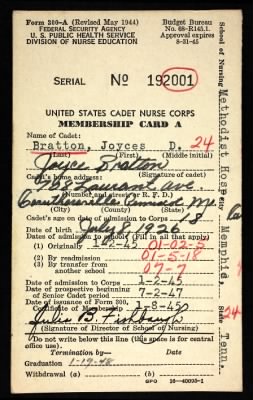 Form 300-A (Revised May 1944)
FEDERAL SECURITY AGENCY
U. S. PUBLIC HEALTH SERVICE
DIVISION OF NURSE EDUCATION
Budget Bureau
No. 68-R145.1.
Approval expires
8-31-45
SERIAL No 192001
UNITED STATES CADET NURSE CORPS
MEMBERSHIP CARD A
Name of Cadet:
Bratton, Joyces D. 24
(Last) (First) (Middle initial)
Joyce Bratton
Cadet's home address: (Signature of cadet)
708 Laurant Ave.
(Number and street or R. F. D.)
Caruthersville Pemiscot Mo
(City) (County) (State)
Cadet's age on date of admission to Corps 18
Date of birth July 8, 1926
Dates of admission to school (Fill in all that apply)
(1) Originally 1-2-45 01-02-5
(2) By readmission 01-5-18
(3) By transfer from
another school 07-7
Date of admission to Corps 1-2-45
Date of prospective beginning
of Senior Cadet period 7-2-47
Date of issuance of Form 300,
Certificate of Membership 1-8-45
Julia B. Fishbaugh
(Signature of Director of School of Nursing)
Do not write below this line (this space is for central
office use).
Termination by— Date
Graduation 1-19-48
Withdrawal (a) (b)
GPO 16-40093-1
School of Nursing Methodist Hosp.
City Memphis,
State Tenn.
24